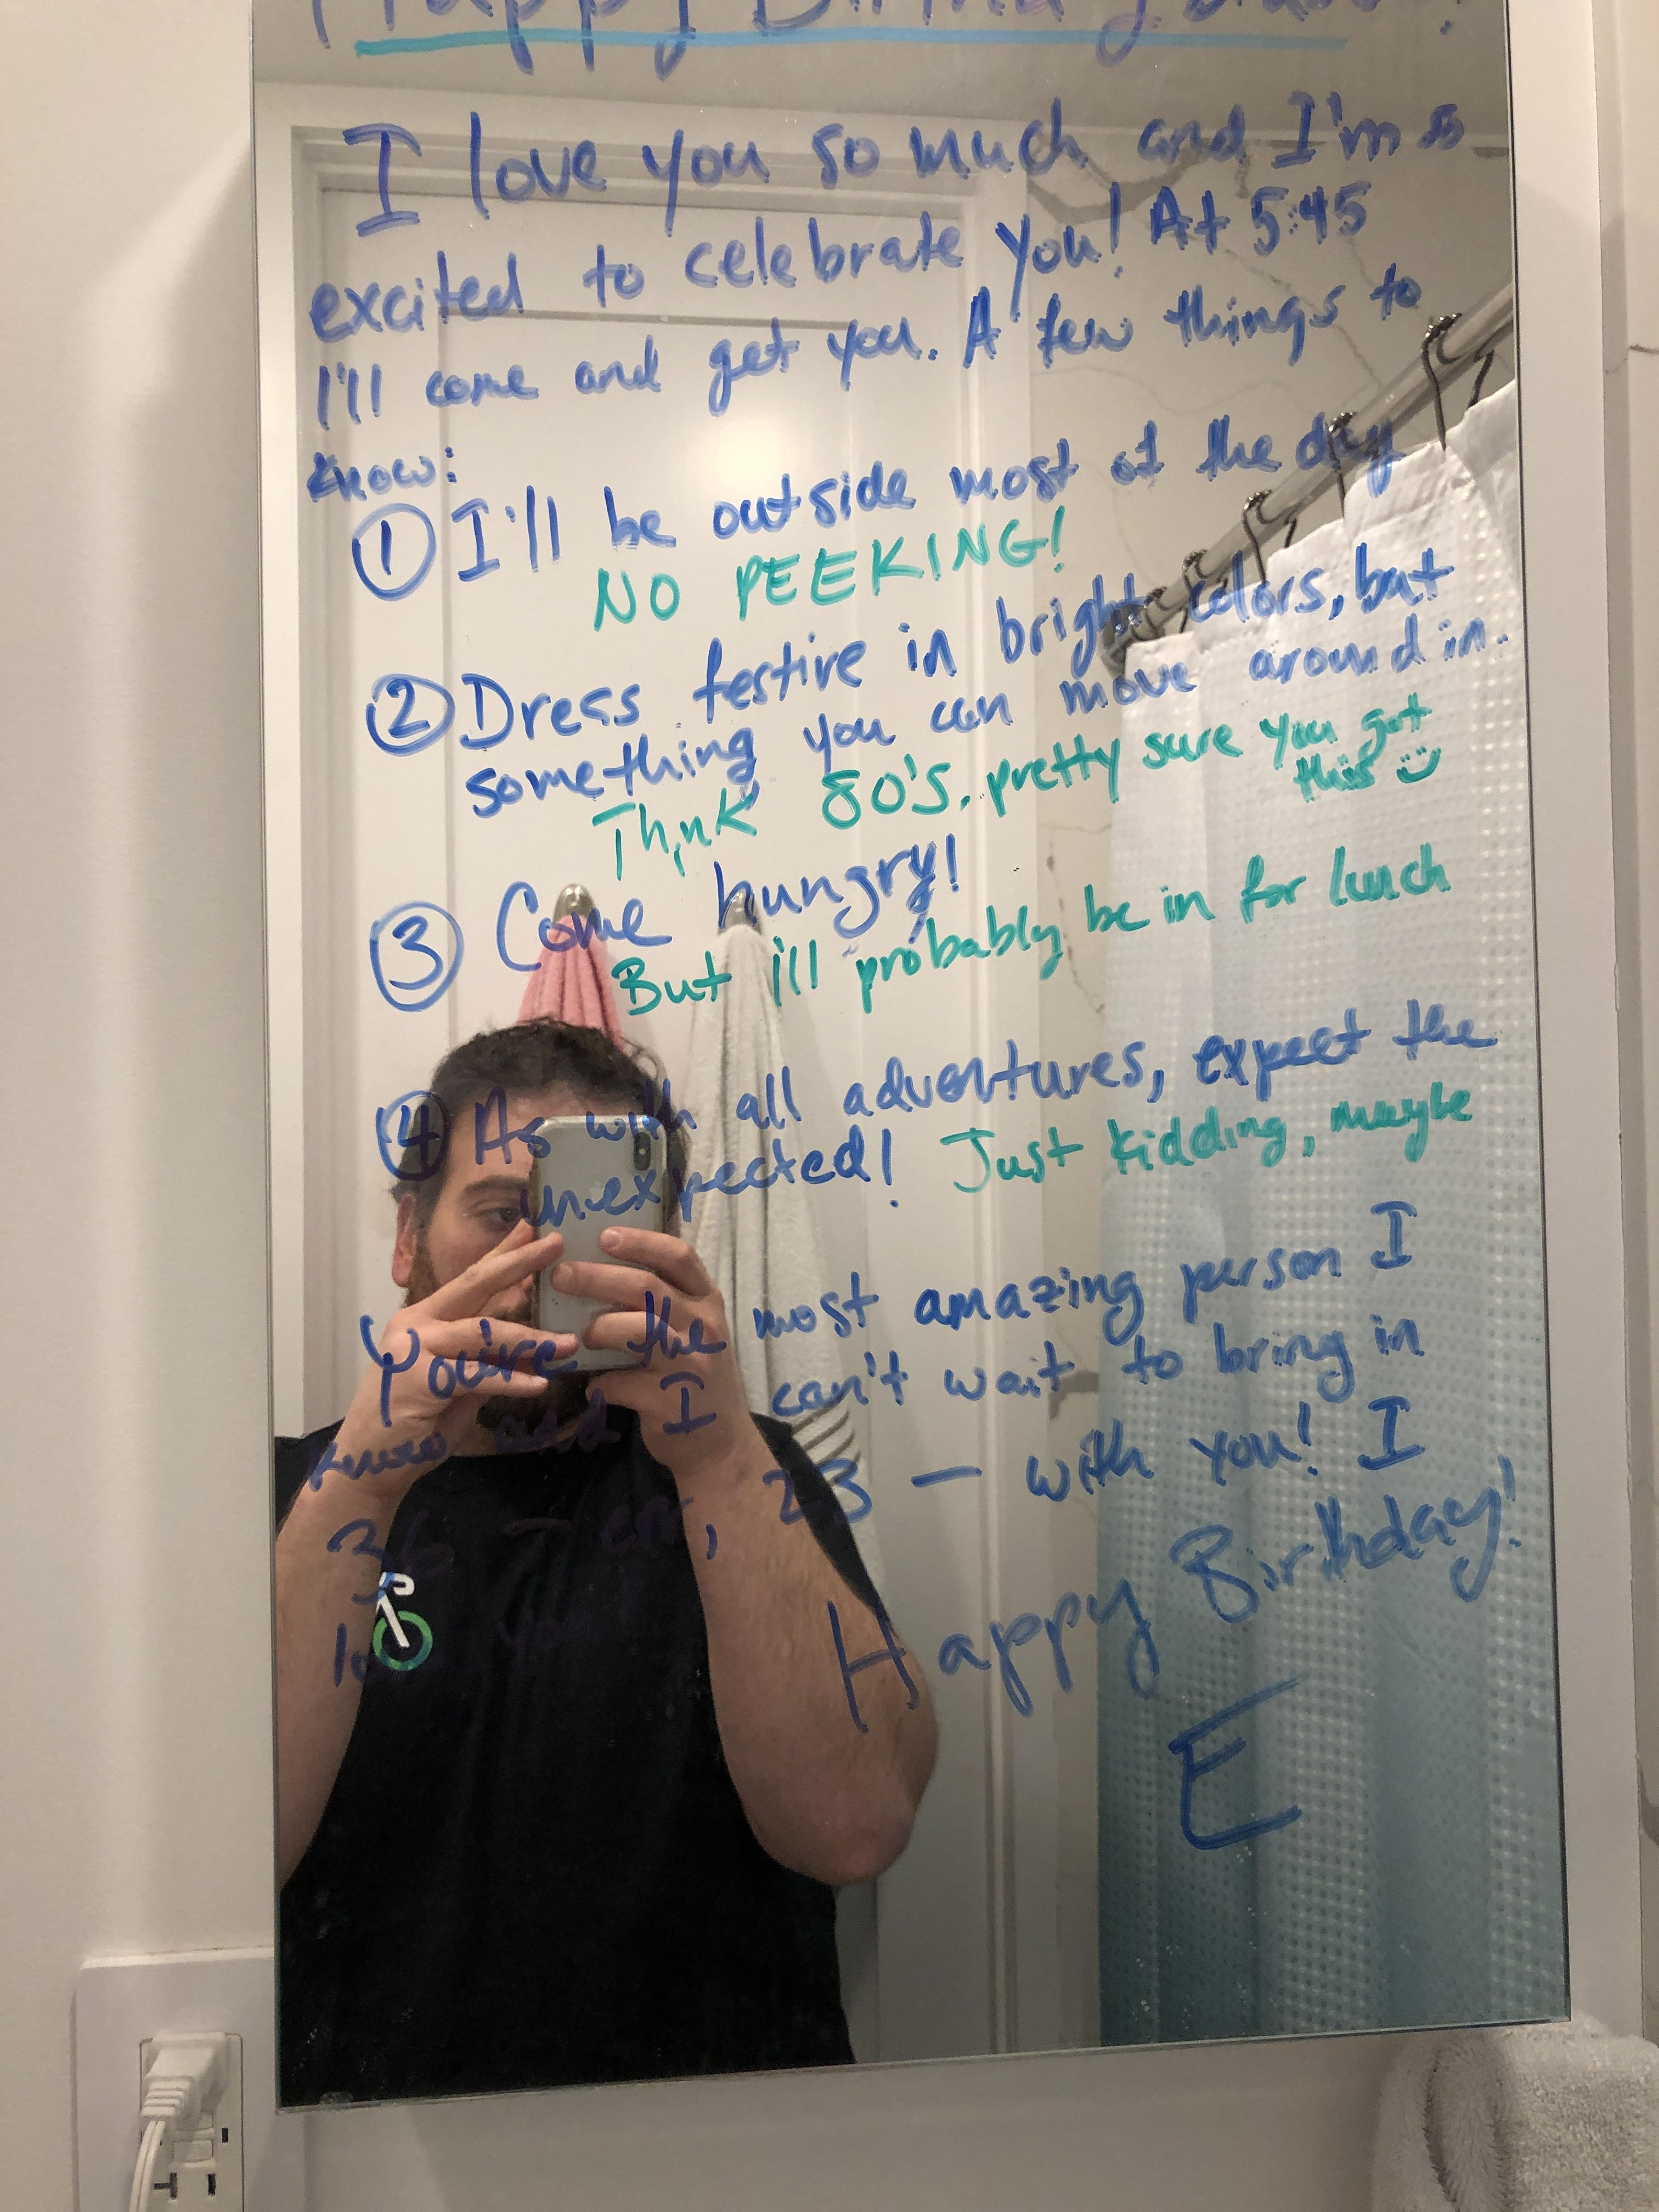 Happy Birthday
I love you so much and I'm so
excited to celebrate you! At 5:45
I'll come and get you. A few things to
know:
① I'll be outside most of the day
NO PEEKING!
② Dress festive in bright colors, but
something you can move around in.
Think 80's. pretty sure you got
this
③ Come hungry!
But i'll probably be in for lunch
④ As with all adventures, expect the
unexpected! Just kidding, maybe
You're the most amazing person I
know and I can't wait to bring in
36 23 — with you! I
you
Happy Birthday!
E